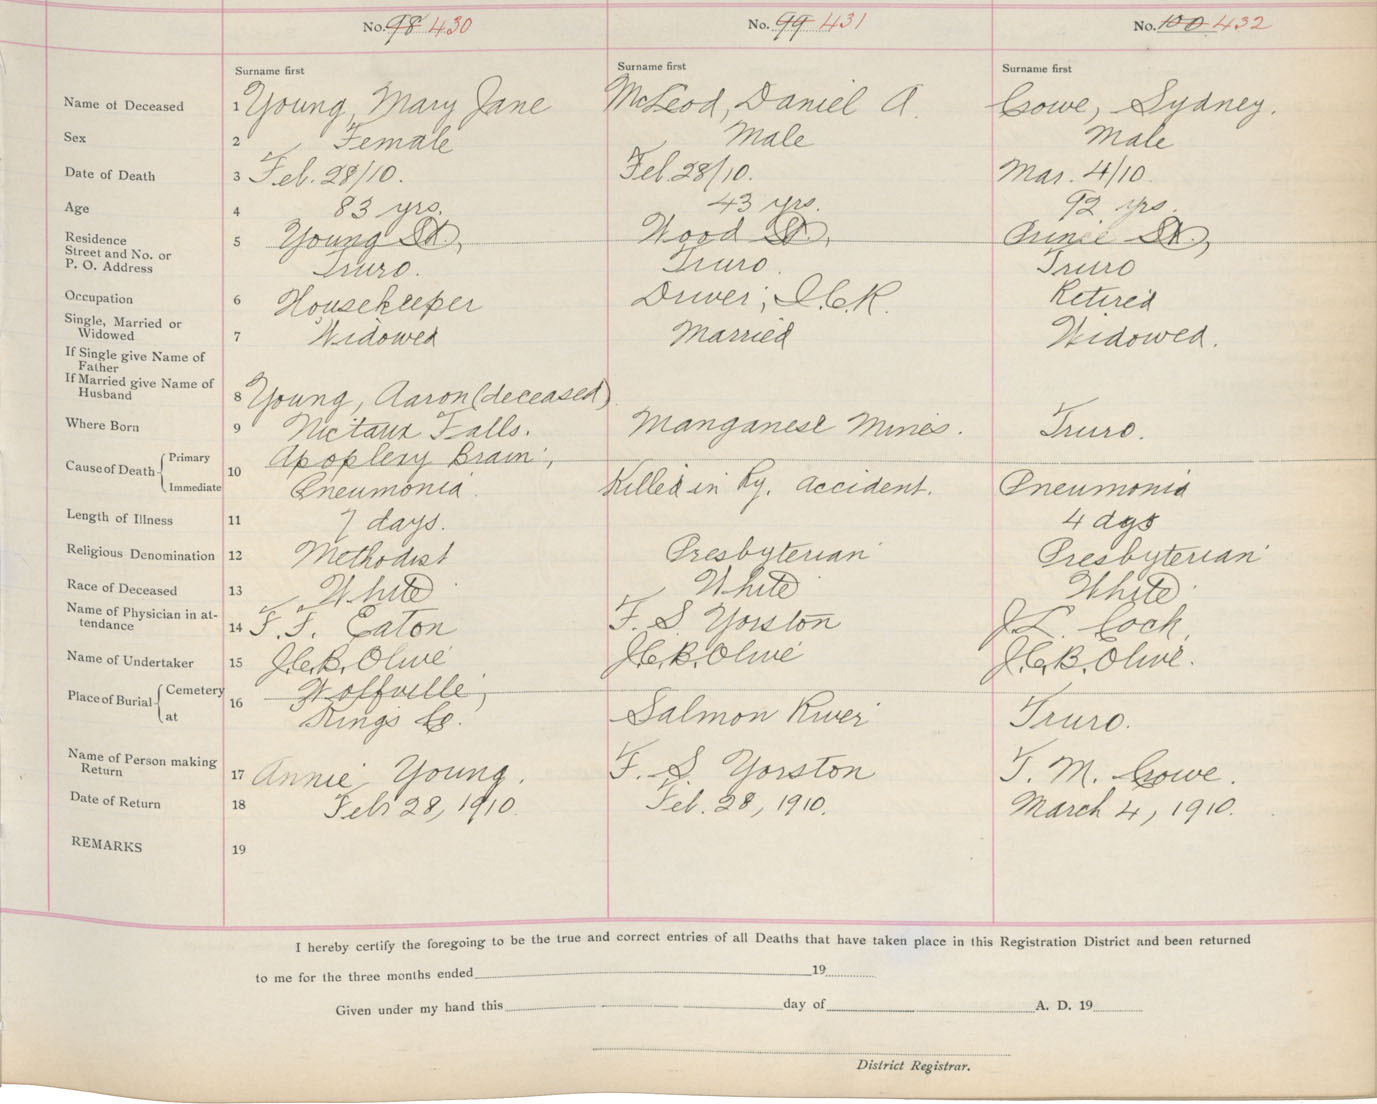 No. 98 430 No. 99 431 No. 100 432
Surname first Surname first Surname first
Name of Deceased 1 Young, Mary Jane McLeod, Daniel A. Crowe, Sydney.
Sex 2 Female Male Male
Date of Death 3 Feb. 28/10. Feb. 28/10. Mar. 4/10
Age 4 83 yrs. 43 yrs. 92 yrs.
Residence 5 Young St., Wood St., Prince St.,
Street and No. or
P. O. Address Truro. Truro. Truro
Occupation 6 Housekeeper Driver, I.C.R. Retired
Single, Married or
Widowed 7 Widowed Married Widowed.
If Single give Name of
Father
If Married give Name of
Husband 8 Young, Aaron (deceased)
Where Born 9 Nictaux Falls. Manganese Mines. Truro.
Cause of Death Primary 10 Apoplexy Brain,
Immediate Pneumonia. Killed in Ry. accident. Pneumonia
Length of Illness 11 7 days. 4 dys
Religious Denomination 12 Methodist Presbyterian Presbyterian
Race of Deceased 13 White White White
Name of Physician in at-
tendance 14 F. F. Eaton F. S. Yorston J. L. Cock,
Name of Undertaker 15 J.C.B. Olive J.C.B. Olive J.C.B. Olive.
Place of Burial Cemetery 16 Wolfville,
at Kings Co. Salmon River Truro.
Name of Person making
Return 17 Annie Young. F. S. Yorston T. M. Crowe.
Date of Return 18 Feb 28, 1910 Feb. 28, 1910. March 4, 1910.
REMARKS 19
I hereby certify the foregoing to be the true and correct entries of all Deaths that have taken place in this Registration District and been returned
to me for the three months ended 19
Given under my hand this day of A. D. 19
District Registrar.